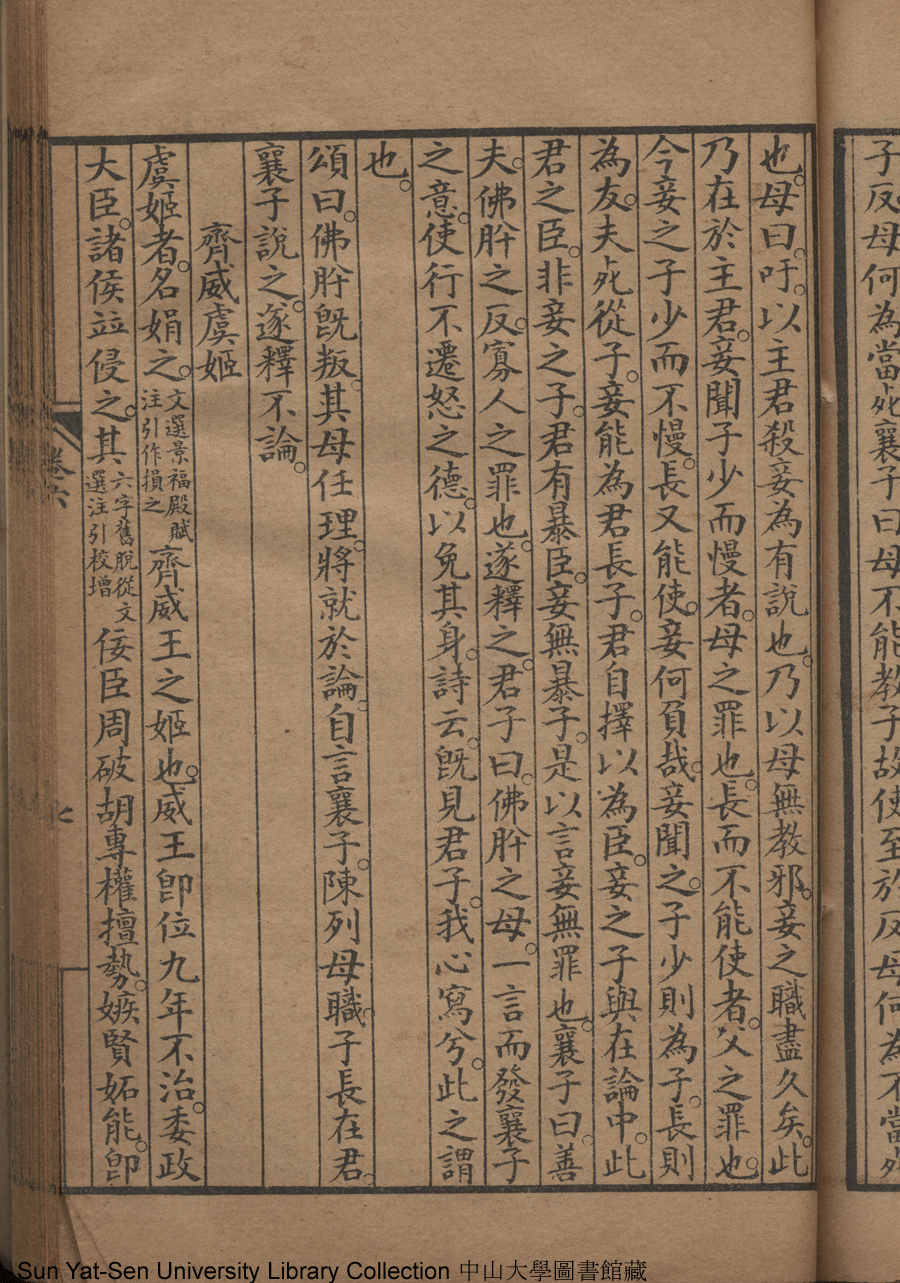 子反母何為當死襄子曰母不能教子故使至於反母何為不當死
也。母曰。吁。以主君殺妾為有說也。乃以母無教邪。妾之職盡久矣。此
乃在於主君。妾聞子少而慢者。母之罪也。長而不能使者。父之罪也。
今妾之子少而不慢。長又能使。妾何負哉。妾聞之。子少則為子。長則
為友。夫死從子。妾能為君長子。君自擇以為臣。妾之子與在論中。此
君之臣。非妾之子。君有暴臣。妾無暴子。是以言妾無罪也。襄子曰。善
夫。佛肸之反。寡人之罪也。遂釋之。君子曰。佛肸之母。一言而發襄子
之意。使行不遷怒之德。以免其身。詩云。旣見君子。我心寫兮。此之謂
也。
頌曰。佛肸旣叛。其母任理。將就於論。自言襄子。陳列母職。子長在君。
襄子說之。遂釋不論。
齊威虞姬
虞姬者。名娟之。文選景福殿賦注引作損之齊威王之姬也。威王卽位九年不治。委政
大臣。諸侯竝侵之。其六字舊脫從文選注引校增佞臣周破胡專權擅勢。嫉賢妬能。卽
卷六
七
Sun Yat-Sen University Library Collection 中山大學圖書館藏